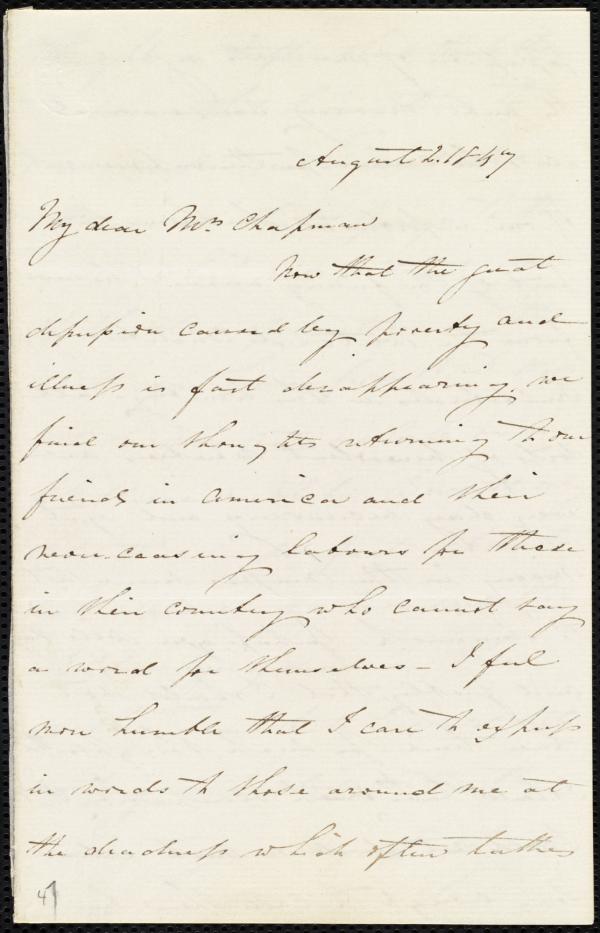 August 2. 1847
My dear Mrs Chapman
Now that the great
depression caused by poverty and
illness is fast disappearing, we
find our thoughts returning to our
friends in America and their
never-ceasing labours for those
in their country who cannot say
a word for themselves - I feel
more humble that I can to express
in words to those around me at
the deadness which often
47